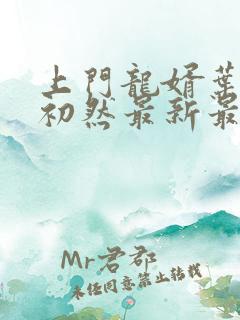 上門龍婿葉
初然最新最
Mr君郡
未经同意禁止转载